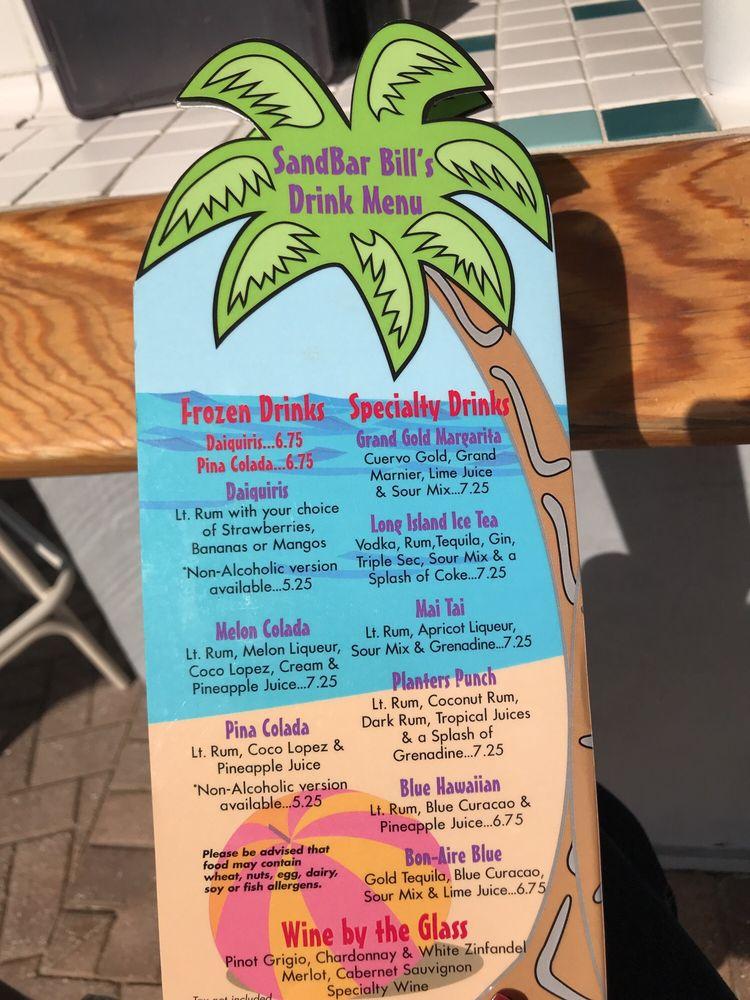 SandBar Bill's
Drink Menu
Frozen Drinks
Daiquiris...6.75
Pina Colada...6.75
Daiquiris
Lt. Rum with your choice
of Strawberries,
Bananas or Mangos
*Non-Alcoholic version
available...5.25
Melon Colada
Lt. Rum, Melon Liqueur,
Coco Lopez, Cream &
Pineapple Juice...7.25
Pina Colada
Lt. Rum, Coco Lopez &
Pineapple Juice
*Non-Alcoholic version
available...5.25
Please be advised that
food may contain
wheat, nuts, egg, dairy,
soy or fish allergens.
Specialty Drinks
Grand Gold Margarita
Cuervo Gold, Grand
Marnier, Lime Juice
& Sour Mix...7.25
Long Island Ice Tea
Vodka, Rum,Tequila, Gin,
Triple Sec, Sour Mix & a
Splash of Coke...7.25
Mai Tai
Lt. Rum, Apricot Liqueur,
Sour Mix & Grenadine...7.25
Planters Punch
Lt. Rum, Coconut Rum,
Dark Rum, Tropical Juices
& a Splash of
Grenadine...7.25
Blue Hawaiian
Lt. Rum, Blue Curacao &
Pineapple Juice...6.75
Bon-Aire Blue
Gold Tequila, Blue Curacao,
Sour Mix & Lime Juice...6.75
Wine by the Glass
Pinot Grigio, Chardonnay & White Zinfandel
Merlot, Cabernet Sauvignon
Specialty Wine
Tax not included